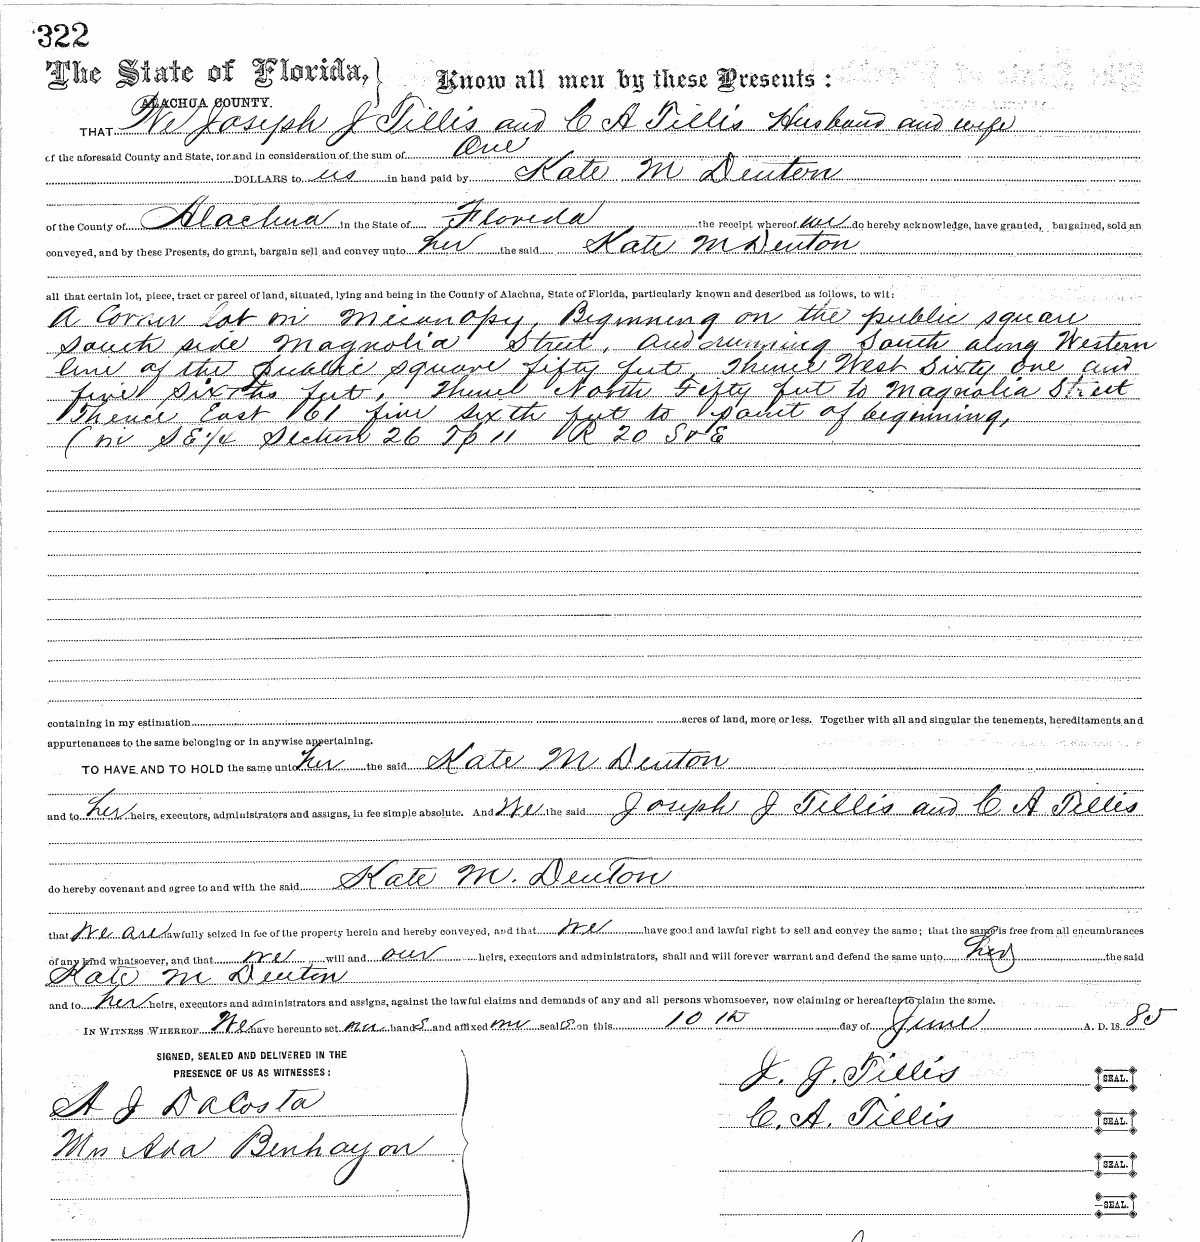 322
The State of Florida, Know all men by these Presents:
ALACHUA COUNTY.
THAT We Joseph J Tillis and C A Tillis Husband and wife
of the aforesaid County and State, for and in consideration of the sum of One
DOLLARS to us in hand paid by Kate M Denton
of the County of Alachua in the State of Florida the receipt whereof we do hereby acknowledge, have granted, bargained, sold an
conveyed, and by these Presents, do grant, bargain sell and convey unto her the said Kate M Denton
all that certain lot, piece, tract or parcel of land, situated, lying and being in the County of Alachua, State of Florida, particularly known and described as follows, to wit:
A Corner lot on Micanopy, Beginning on the public square
South side Magnolia Street, and running South along Western
line of the public square fifty feet, Thence West Sixty one and
five sixths feet, Thence North Fifty feet to Magnolia Street
Thence East 61 five sixth feet to point of beginning,
(in SE 1/4 Section 26 Tp 11 R 20 S & E
containing in my estimation acres of land, more or less. Together with all and singular the tenements, hereditaments and
appurtenances to the same belonging or in anywise appertaining.
TO HAVE AND TO HOLD the same unto her the said Kate M Denton
and to her heirs, executors, administrators and assigns, in fee simple absolute. And We the said Joseph J Tillis and C A Tillis
do hereby covenant and agree to and with the said Kate M. Denton
that We are lawfully seized in fee of the property herein and hereby conveyed, and that we have good and lawful right to sell and convey the same; that the same is free from all encumbrances
of any kind whatsoever, and that we will and our heirs, executors and administrators, shall and will forever warrant and defend the same unto her the said
Kate M Denton
and to her heirs, executors and administrators and assigns, against the lawful claims and demands of any and all persons whomsoever, now claiming or hereafter to claim the same.
IN WITNESS WHEREOF We have hereunto set our hands and affixed our seals on this 10th day of June A. D. 18 85
SIGNED, SEALED AND DELIVERED IN THE
PRESENCE OF US AS WITNESSES:
J. J. Tillis SEAL.
A J DaCosta
C. A. Tillis SEAL.
Mrs Ada Benhayon
SEAL.
SEAL.